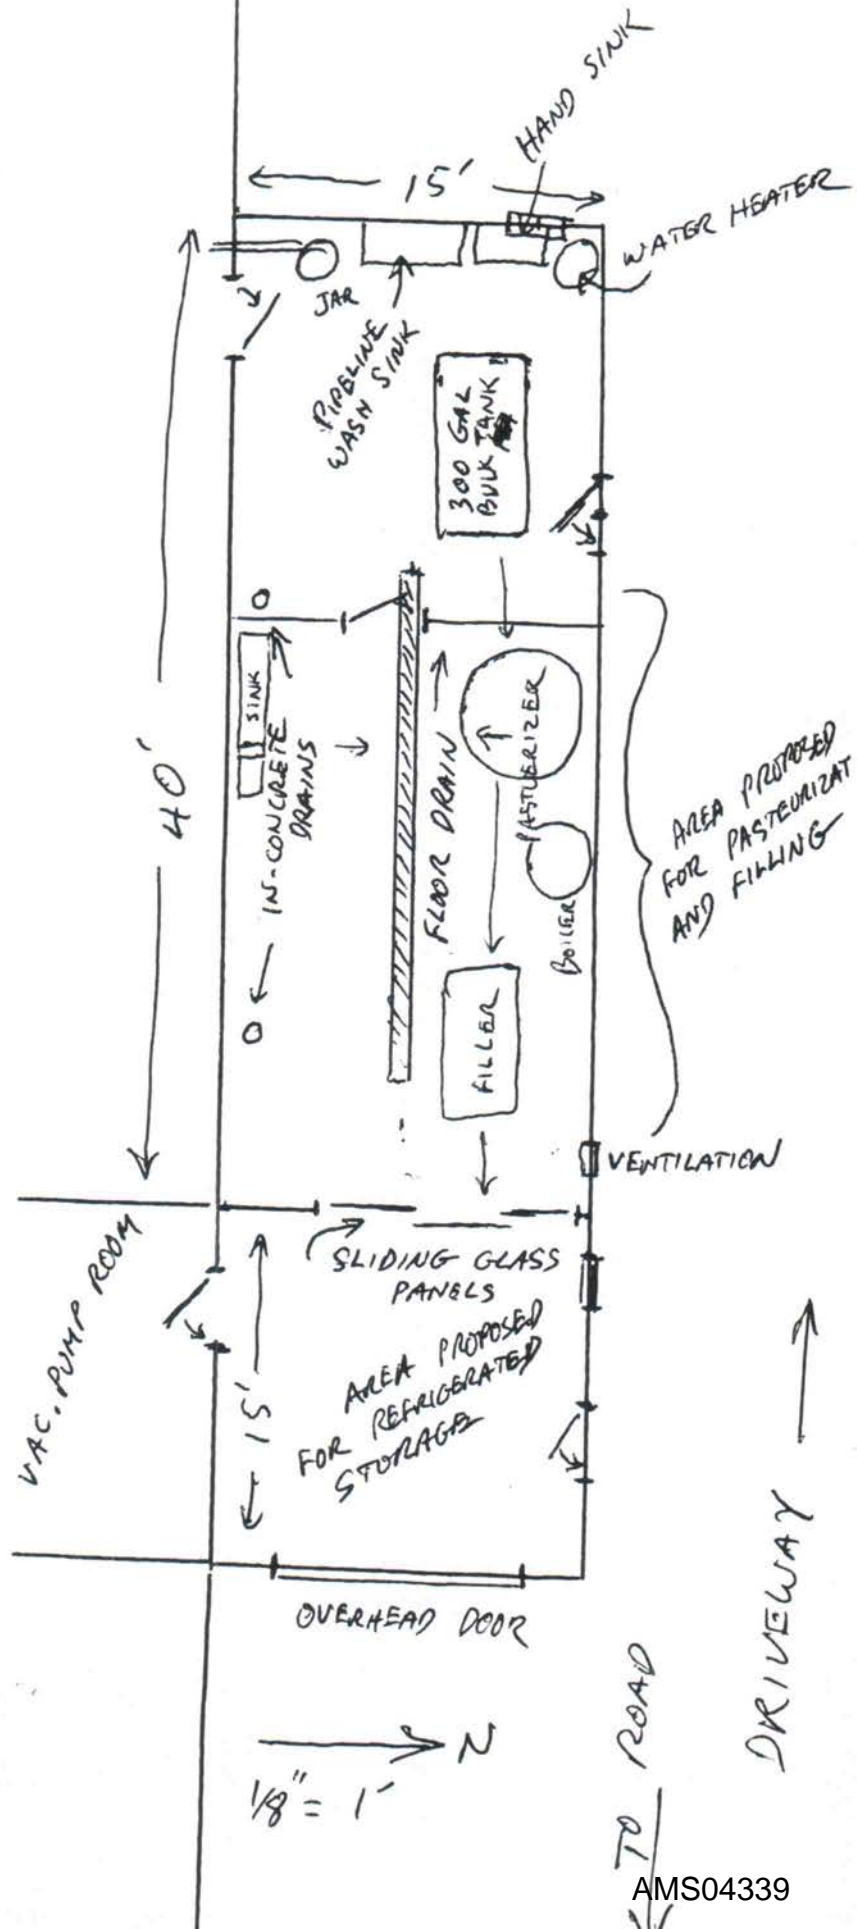 HAND SINK
15'
WATER HEATER
JAR
PIPELINE
WASH SINK
300 GAL
BULK TANK
40'
SINK
IN-CONCRETE
DRAINS
FLOOR DRAIN
PASTUERIZER
BOILER
FILLER
AREA PROPOSED
FOR PASTEURIZAT
AND FILLING
VENTILATION
VAC. PUMP ROOM
SLIDING GLASS
PANELS
15'
AREA PROPOSED
FOR REFRIGERATED
STORAGE
OVERHEAD DOOR
N
1/8" = 1'
TO ROAD
DRIVEWAY
AMS04339